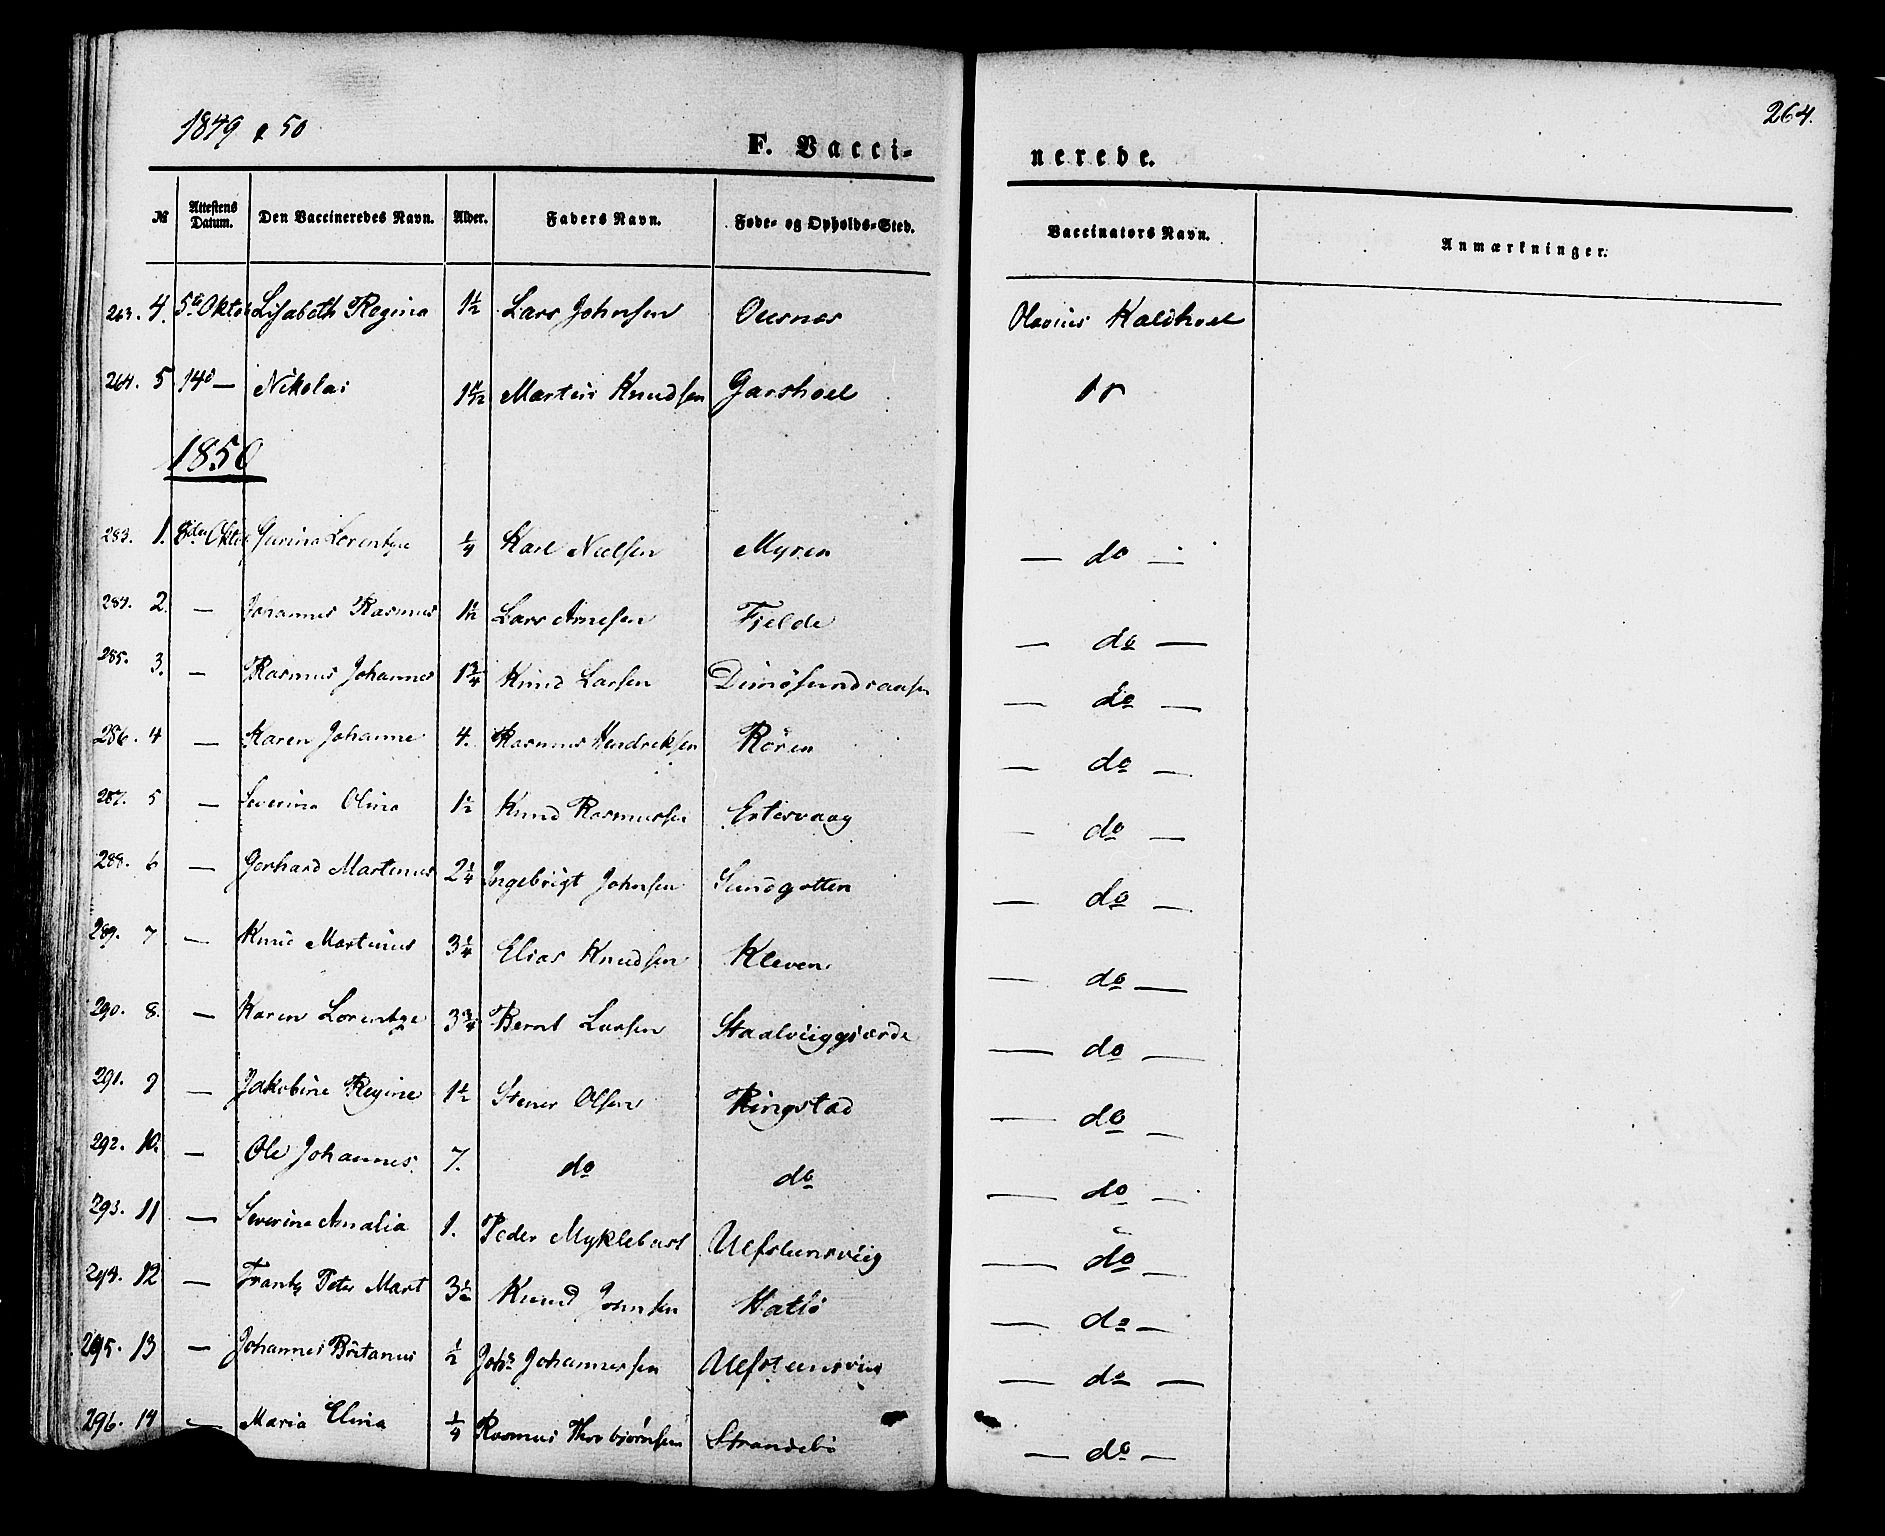 1849 & 50
264.
F. Vacci-
nerede.
№ Attestens Datum. Den Vaccineredes Navn. Alder. Faders Navn. Føde- og Opholds-Sted. Vaccinators Navn. Anmærkninger.
263. 4. 5e Oktob Lisabeth Regina 1½ Lars Johnsen Ouesnes Olavius Kaldhoel
264. 5 14d — Nikolai 1½ Martin Knudsen Garshoel
1850
283. 1. 8de Oktb Lorentze ¼ Karl Nielsen Myren — do —
284. 2. — Johannes Rasmus 1½ Lars Arnesen Fjelde — do —
285. 3. — Rasmus Johannes 1¾ Knud Larsen Dimösundsaasen — do —
286. 4 — Karen Johanne 4. Rasmus Hendriksen Rören — do —
287. 5 — Severina Olina 1½ Knud Rasmussen Ertesvaag — do —
288. 6 — Gerhard Martinus 2¼ Ingebrigt Johnsen Sundgotten — do —
289. 7 — Knud Martinus 3¼ Elias Knudsen Kleven — do —
290. 8. — Karen Lorentze 3¾ Bernt Larsen Staalviiggjærde — do —
291. 9 — Jakobine Regine 1½ Stener Olsen Ringstad — do —
292. 10. — Ole Johannes. 7. do do — do —
293. 11 — Severine Amalia 1. Peder Myklebust Ulfstensviig — do —
294. 12 — Frantz Peter Mart 3½ Knud Johnsen Hatlö — do —
295. 13 — Johannes Britanus ½ Johs Johannessen Ulfsteensviig — do —
296. 14 — Maria Elina ¼ Rasmus Thorbjörnsen Strandebö — do —